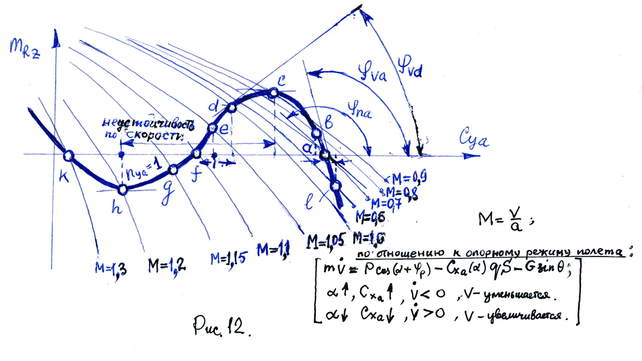 m_Rz
φ_va
φ_vd
φ_na
c
d
b
e
неустойчивость
по скорости
C_ya
n_ya=1
a
k
f
g
h
l
M=0,9
M=0,8
M=0,7
M=0,6
M=1,3
M=1,2
M=1,15
M=1,1
M=1,05
M=1,0
M = V/a ;
по отношению к опорному режиму полета:
mV̇ = P cos(α+φ_p) - C_xa(α) qS - G sinθ;
α↑, C_xa↑, V̇<0, V-уменьшается.
α↓ C_xa↓, V̇>0, V-увеличивается.
Рис. 12.